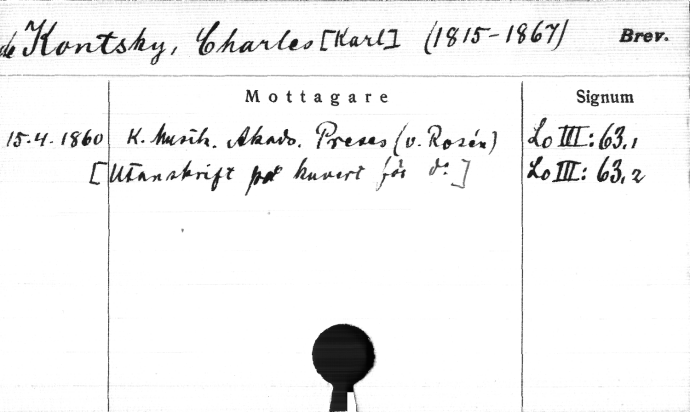 de Kontsky, Charles [Karl] (1815-1867) Brev.
Mottagare Signum
15.4.1860 K. Musik. Akad. Preses (v. Rosén) Lo III: 63,1
[Utanskrift på kuvert för d:o] Lo III: 63,2